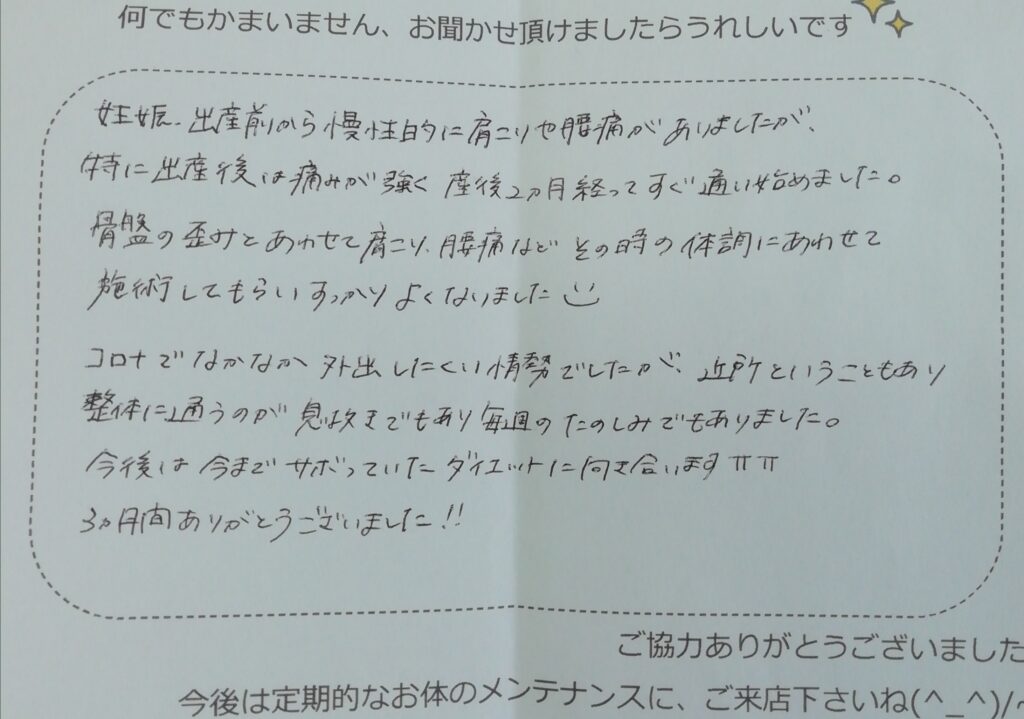 何でもかまいません、お聞かせ頂けましたらうれしいです
妊娠、出産前から慢性的に肩こりや腰痛がありましたが、
特に出産後は痛みが強く産後2ヵ月経ってすぐ通い始めました。
骨盤の歪みとあわせて肩こり、腰痛などその時の体調にあわせて
施術してもらいすっかりよくなりました
コロナでなかなか外出しにくい情勢でしたが、近所ということもあり
整体に通うのが息抜きでもあり毎週のたのしみでもありました。
今後は今までサボっていたダイエットに向き合いますTT TT
3ヵ月間ありがとうございました!!
ご協力ありがとうございました
今後は定期的なお体のメンテナンスに、ご来店下さいね(^_^)/~